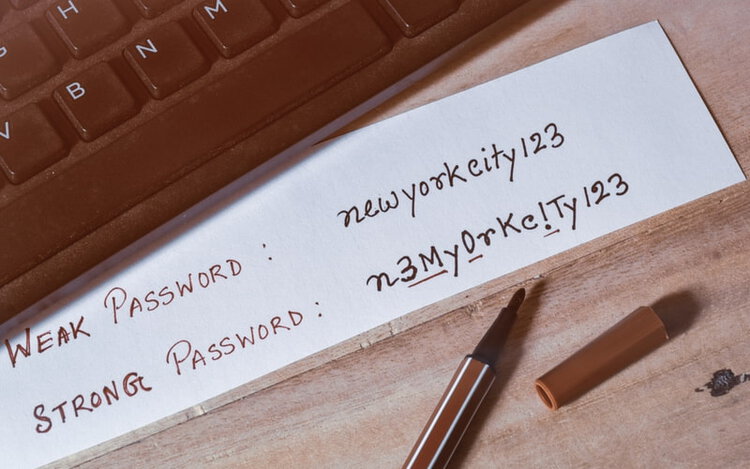 G H
V B N M
WEAK PASSWORD : newyorkcity123
STRONG PASSWORD : n3MyOrKc!Ty123